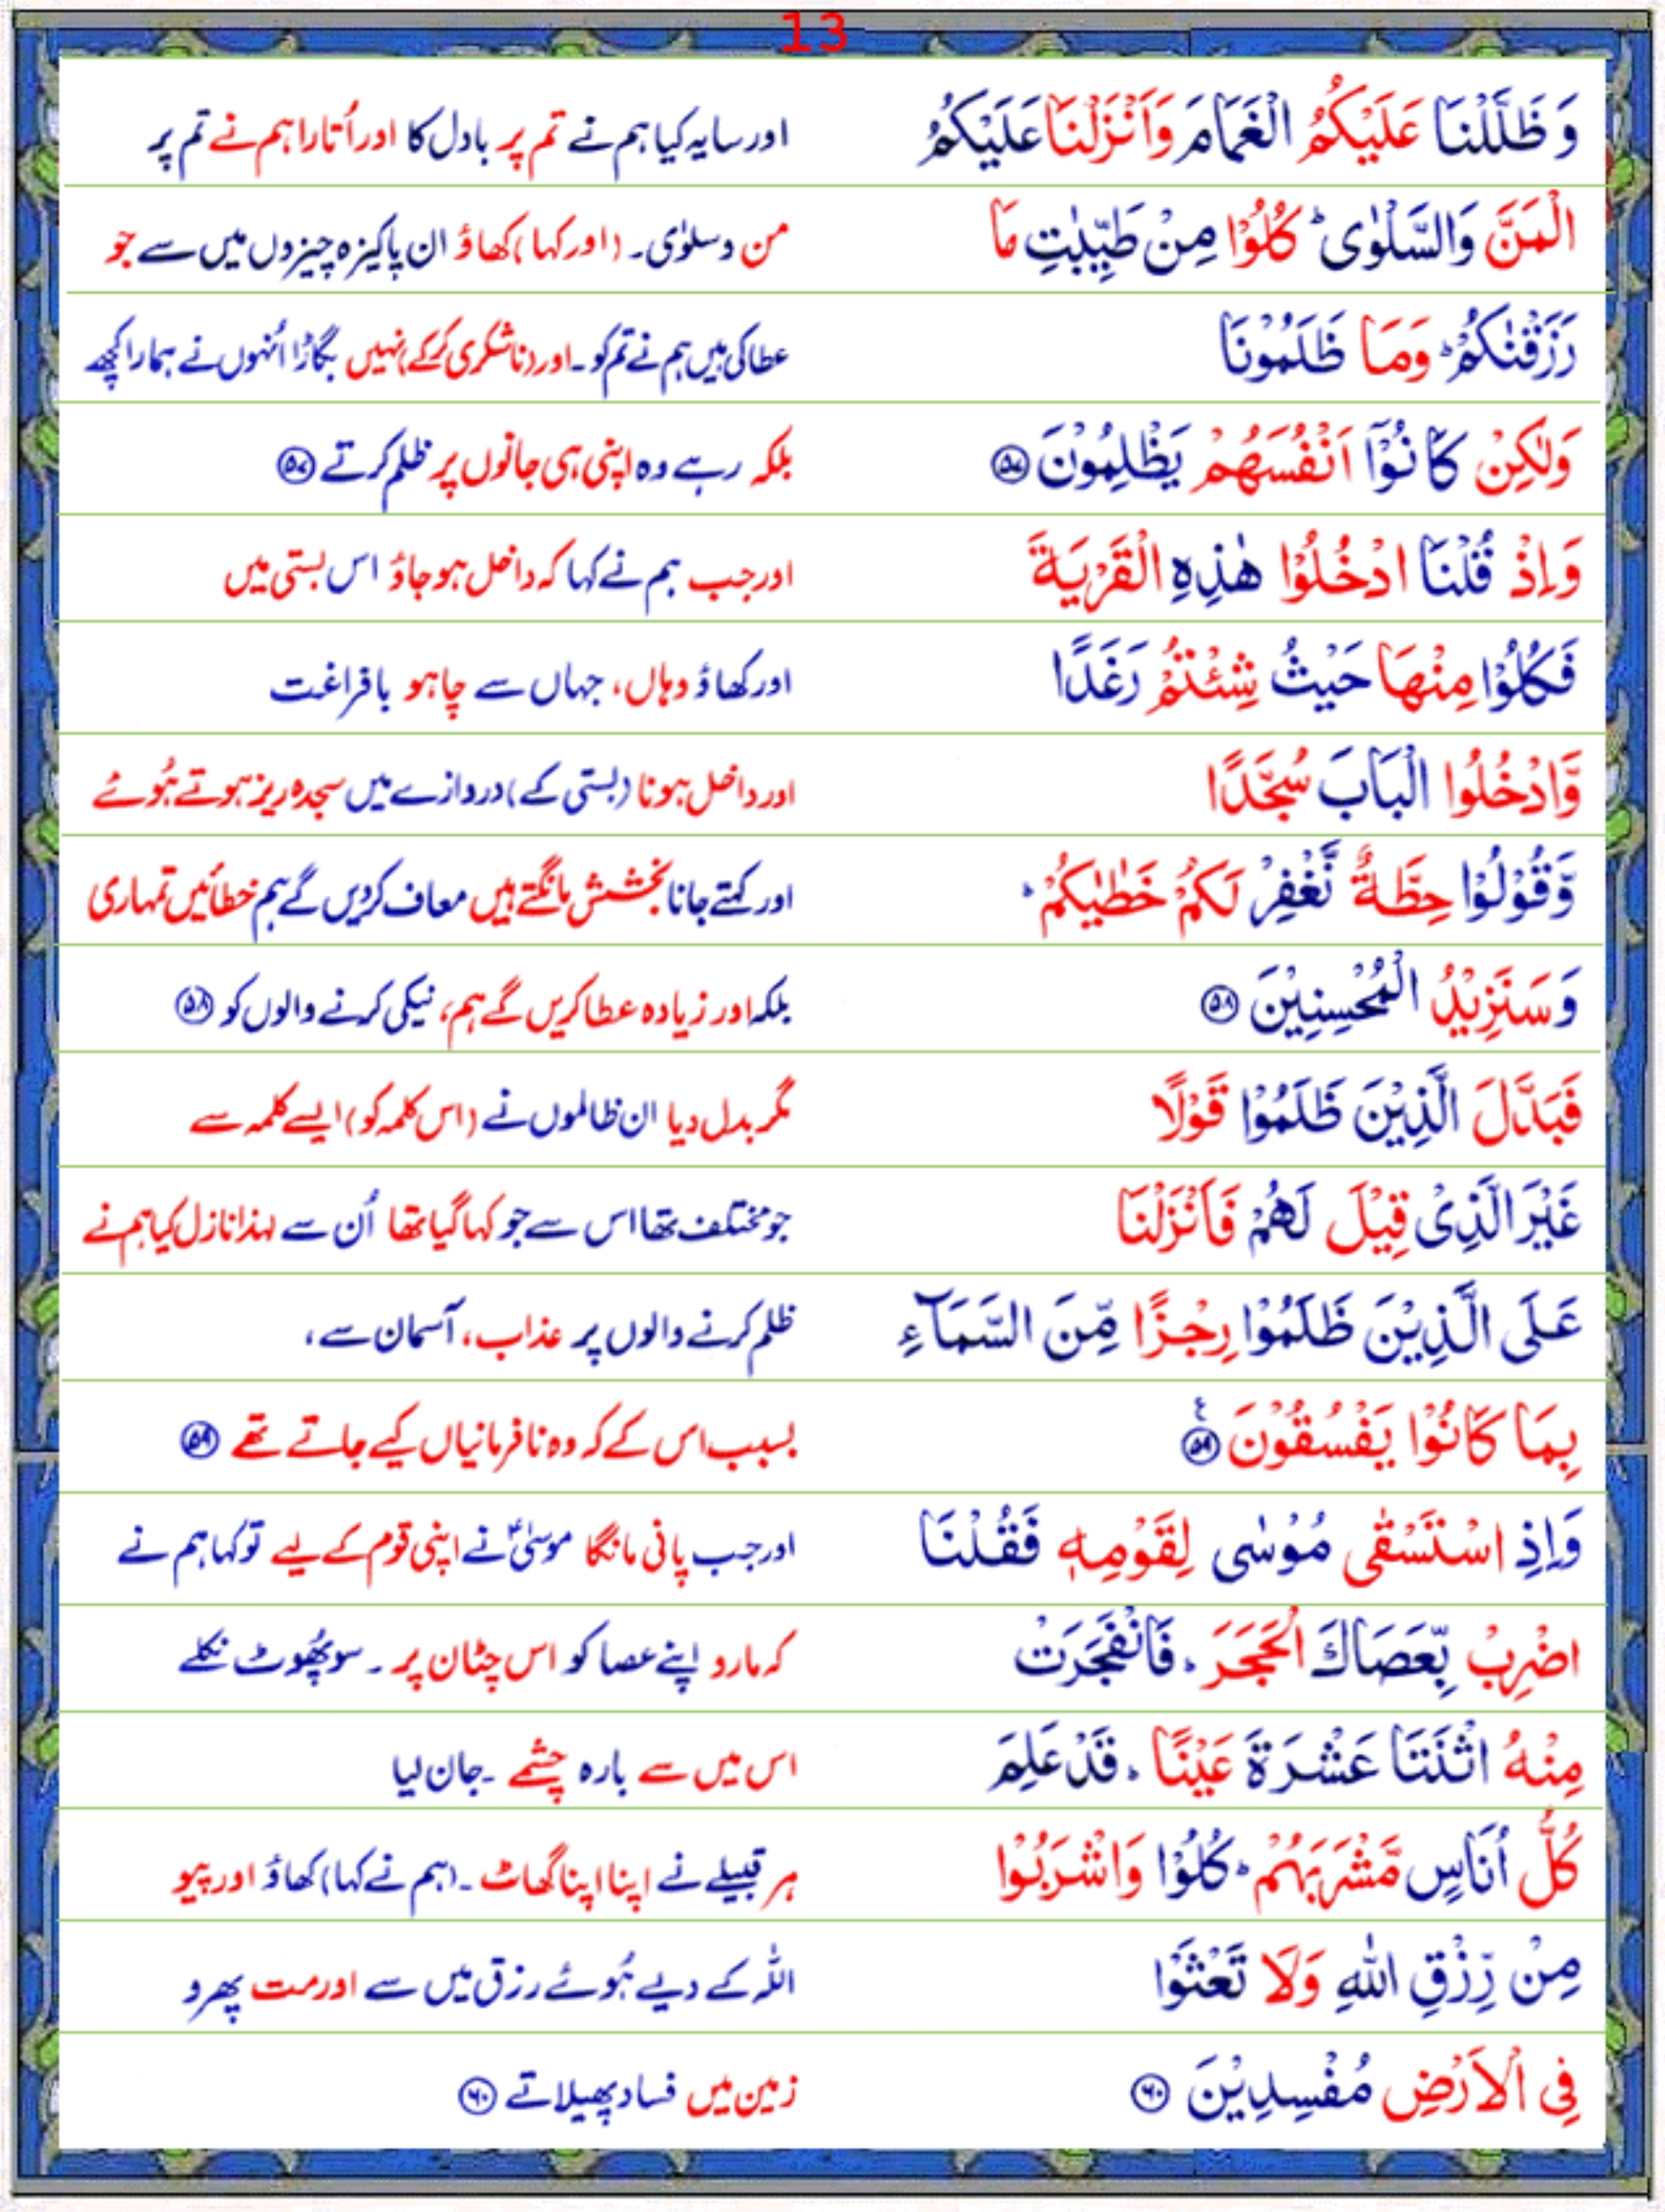 13
وَظَلَّلْنَا عَلَيْكُمُ الْغَمَامَ وَاَنْزَلْنَا عَلَيْكُمُ اور سایہ کیا ہم نے تم پر بادل کا اور اُتارا ہم نے تم پر
الْمَنَّ وَالسَّلْوٰى ؕ كُلُوْا مِنْ طَيِّبٰتِ مَا من و سلوٰی۔ (اور کہا) کھاؤ ان پاکیزہ چیزوں میں سے جو
رَزَقْنٰكُمْ ؕ وَمَا ظَلَمُوْنَا عطا کی ہیں ہم نے تم کو ۔اور (ناشکری کرکے) نہیں بگاڑا اُنہوں نے ہمارا کچھ
وَلٰكِنْ كَانُوْٓا اَنْفُسَهُمْ يَظْلِمُوْنَ ۵۷ بلکہ رہے وہ اپنی ہی جانوں پر ظلم کرتے ۵۷
وَاِذْ قُلْنَا ادْخُلُوْا هٰذِهِ الْقَرْيَةَ اور جب ہم نے کہا کہ داخل ہو جاؤ اس بستی میں
فَكُلُوْا مِنْهَا حَيْثُ شِئْتُمْ رَغَدًا اور کھاؤ وہاں، جہاں سے چاہو بافراغت
وَّادْخُلُوا الْبَابَ سُجَّدًا اور داخل ہونا (بستی کے) دروازے میں سجدہ ریز ہوتے ہُوئے
وَّقُوْلُوْا حِطَّةٌ نَّغْفِرْ لَكُمْ خَطٰيٰكُمْ ؕ اور کہتے جانا بخشش مانگتے ہیں معاف کردیں گے ہم خطائیں تمہاری
وَسَنَزِيْدُ الْمُحْسِنِيْنَ ۵۸ بلکہ اور زیادہ عطا کریں گے ہم، نیکی کرنے والوں کو ۵۸
فَبَدَّلَ الَّذِيْنَ ظَلَمُوْا قَوْلًا مگر بدل دیا ان ظالموں نے (اس کلمہ کو) ایسے کلمہ سے
غَيْرَ الَّذِىْ قِيْلَ لَهُمْ فَاَنْزَلْنَا جو مختلف تھا اس سے جو کہا گیا تھا اُن سے لہذا نازل کیا ہم نے
عَلَى الَّذِيْنَ ظَلَمُوْا رِجْزًا مِّنَ السَّمَآءِ ظلم کرنے والوں پر عذاب، آسمان سے،
بِمَا كَانُوْا يَفْسُقُوْنَ ۵۹ ع بسبب اس کے کہ وہ نافرمانیاں کیے جاتے تھے ۵۹
وَاِذِ اسْتَسْقٰى مُوْسٰى لِقَوْمِهٖ فَقُلْنَا اور جب پانی مانگا موسٰیؑ نے اپنی قوم کے لیے تو کہا ہم نے
اضْرِبْ بِّعَصَاكَ الْحَجَرَ ؕ فَانْفَجَرَتْ کہ مارو اپنے عصا کو اس چٹان پر ۔ سو پھُوٹ نکلے
مِنْهُ اثْنَتَا عَشْرَةَ عَيْنًا ؕ قَدْ عَلِمَ اس میں سے بارہ چشمے ۔جان لیا
كُلُّ اُنَاسٍ مَّشْرَبَهُمْ ؕ كُلُوْا وَاشْرَبُوْا ہر قبیلے نے اپنا اپنا گھاٹ ۔(ہم نے کہا) کھاؤ اور پیو
مِنْ رِّزْقِ اللّٰهِ وَلَا تَعْثَوْا اللّٰہ کے دیے ہُوئے رزق میں سے اور مت پھرو
فِى الْاَرْضِ مُفْسِدِيْنَ ۶۰ زمین میں فساد پھیلاتے ۶۰